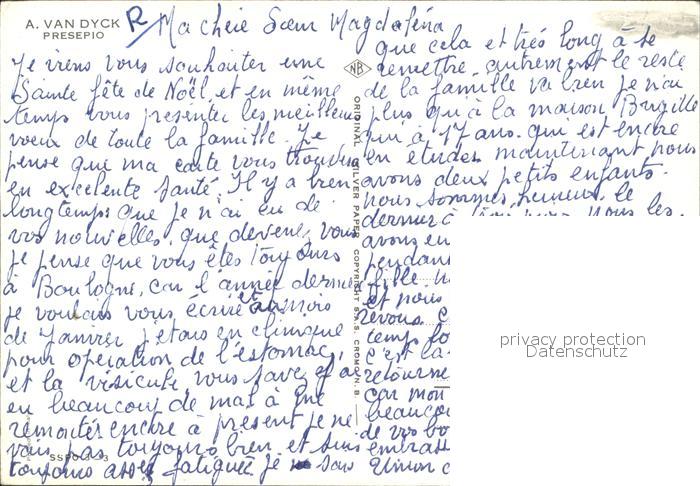 A. VAN DYCK
PRESEPIO
R/
Ma chère Sœur Magdaléna
Je viens vous souhaiter une
Sainte fête de Noël, et en même
temps vous présenter les meilleurs
voeux de toute la famille. Je
pense que ma carte vous trouvera
en excelente santé, Il y a bien
longtemps que je n'ai eu de
vos nouvelles, que devene, vous
je pense que vous êtes toujours
à Boulogne, car l'année dernière
je voulais vous écrire et au mois
de Janvier j'étais en clinique
pour opération de l'estomac,
et la visicule vous savez j'ai
eu beaucoup de mal à me
remonter encore à présent je ne
vais pas toujours bien, et suis
toujours assez fatiguée je sais
que cela et très long à se
remettre, autrement le reste
de la famille va bien je n'ai
plus qu'à la maison Brigitte
qui a 17 ans. qui est encore
en études maintenant nous
avons deux petits enfants.
nous sommes heureux le
dernier à
nous les
avons eu
pendant
fille
et nous
revous
temps
c'est la
retourne
car mon
beaucou
de vos bo
embrass
Union
NB
ORIGINAL SILVER PAPER COPYRIGHT S.A.S. CROMO N.B.
privacy protection
Datenschutz